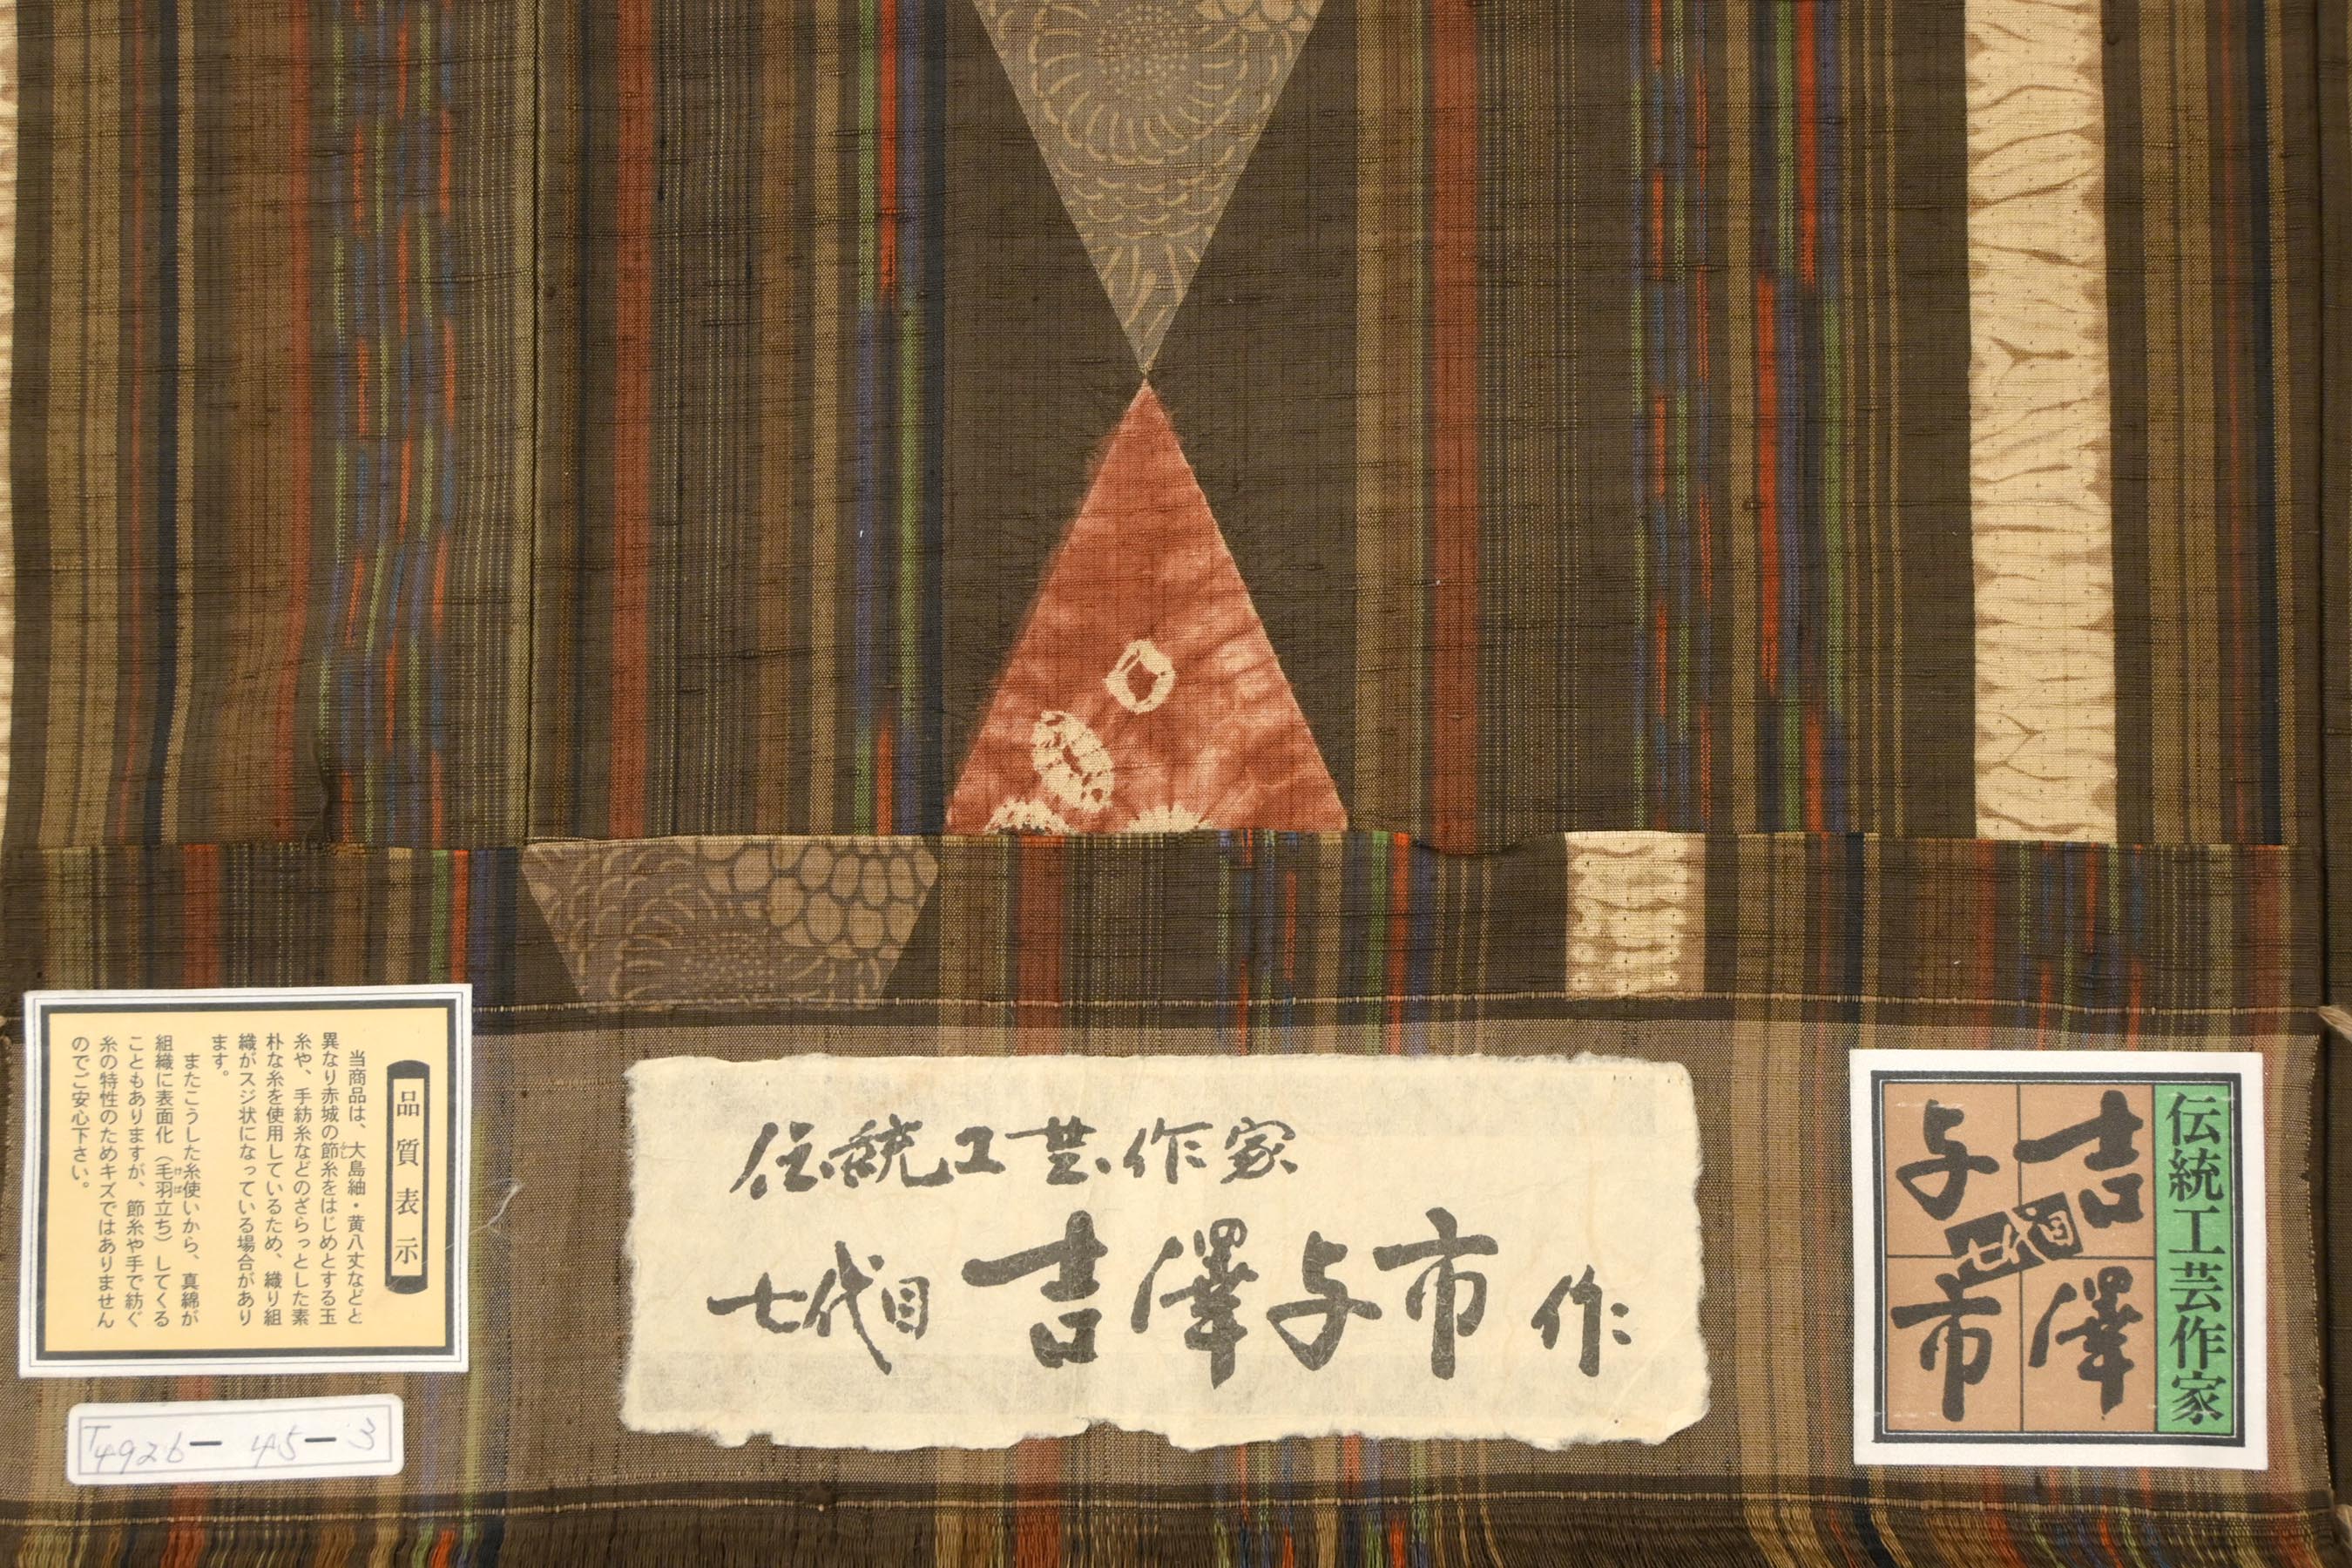 品質表示
当商品は、大島紬・黄八丈などと
異なり赤城の節糸をはじめとする玉
糸や、手紡糸などのざらっとした素
朴な糸を使用しているため、織り組
織がスジ状になっている場合があり
ます。
またこうした糸使いから、真綿が
組織に表面化（毛羽立ち）してくる
こともありますが、節糸や手で紡ぐ
糸の特性のためキズではありません
のでご安心下さい。
T4926-45-3
伝統工芸作家
七代目 吉澤与市 作
伝統工芸作家
吉澤
与市
七代目